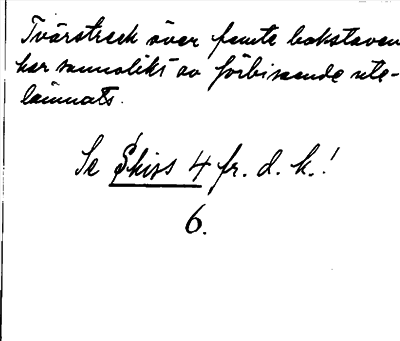 Tvärstreck över femte bokstaven
har sannolikt av förbiseende ute-
lämnats.
Se Skiss 4 fr. d. h.!
6.